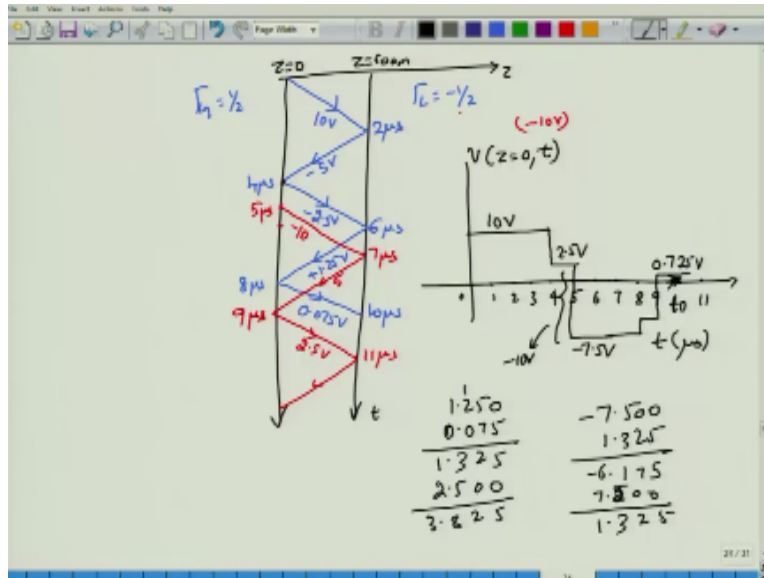 File Edit View Insert Actions Tools Help
Page Width
B I
z=0
z=500m
z
Γg = ½
ΓL = -½
10V
2μs
-5V
4μs
-2.5V
5μs
-10
6μs
7μs
+1.25V
5
8μs
0.075V
10μs
9μs
2.5V
11μs
t
(-10V)
V(z=0,t)
10V
2.5V
0.725V
0 1 2 3 4 5 6 7 8 9 10 11
-10V
-7.5V
t(μs)
1
1.250
0.075
1.325
2.500
3.825
-7.500
1.325
-6.175
7.500
1.325
31 / 31